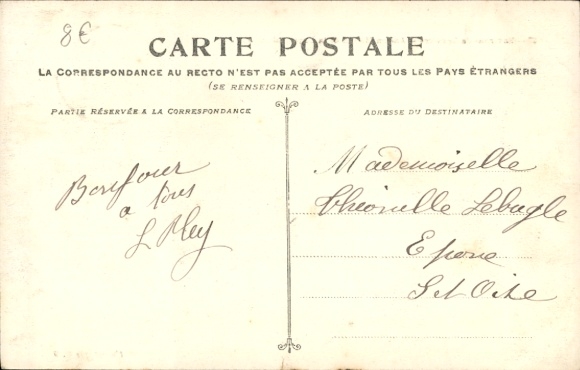 8€
CARTE POSTALE
LA CORRESPONDANCE AU RECTO N'EST PAS ACCEPTÉE PAR TOUS LES PAYS ÉTRANGERS
(SE RENSEIGNER A LA POSTE)
PARTIE RÉSERVÉE A LA CORRESPONDANCE
ADRESSE DU DESTINATAIRE
Bonjour
a tous
Mademoiselle
Lebugle
Epone
S et Oise